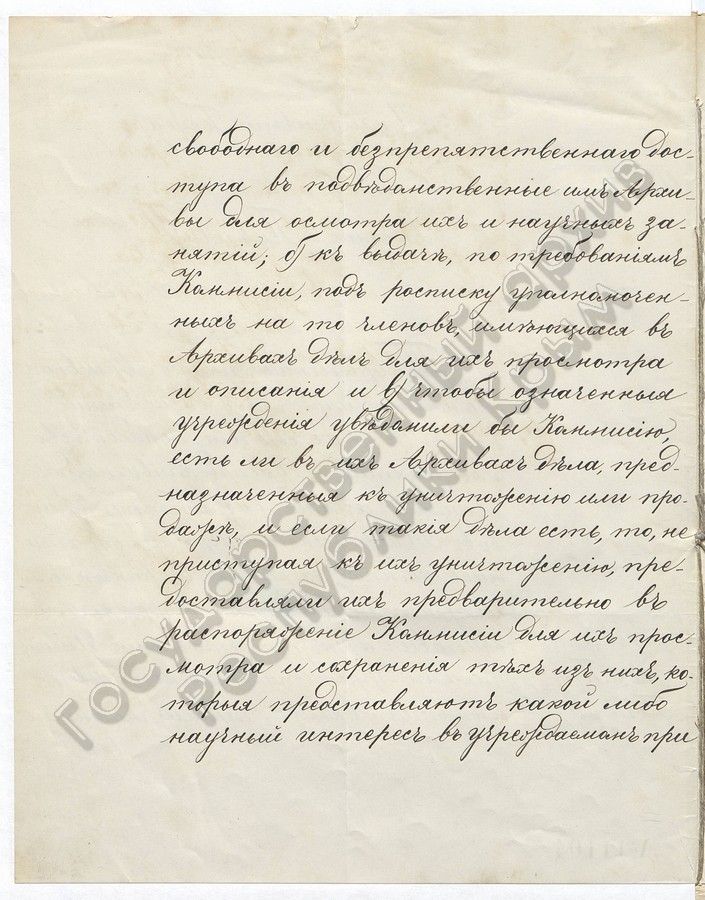 свободнаго и безпрепятственнаго дос-
тупа въ подвѣдомственные имъ Архи-
вы для осмотра ихъ и научныхъ за-
нятій; б) къ выдачѣ, по требованіямъ
Коммисіи, подъ росписку уполномочен-
ныхъ на то членовъ, имѣющихся въ
Архивахъ дѣлъ для ихъ просмотра
и описанія и в) чтобы означенныя
учрежденія увѣдомили бы Коммисію,
есть ли въ ихъ Архивахъ дѣла, пред-
назначенныя къ уничтоженію или про-
дажѣ, и если такія дѣла есть, то, не
приступая къ ихъ уничтоженію, пре-
доставляли ихъ предварительно въ
распоряженіе Коммисіи для ихъ прос-
мотра и сохраненія тѣхъ изъ нихъ, ко-
торыя представляютъ какой либо
научный интересъ въ учреждаемомъ при
Государственный архив
Республики Крым